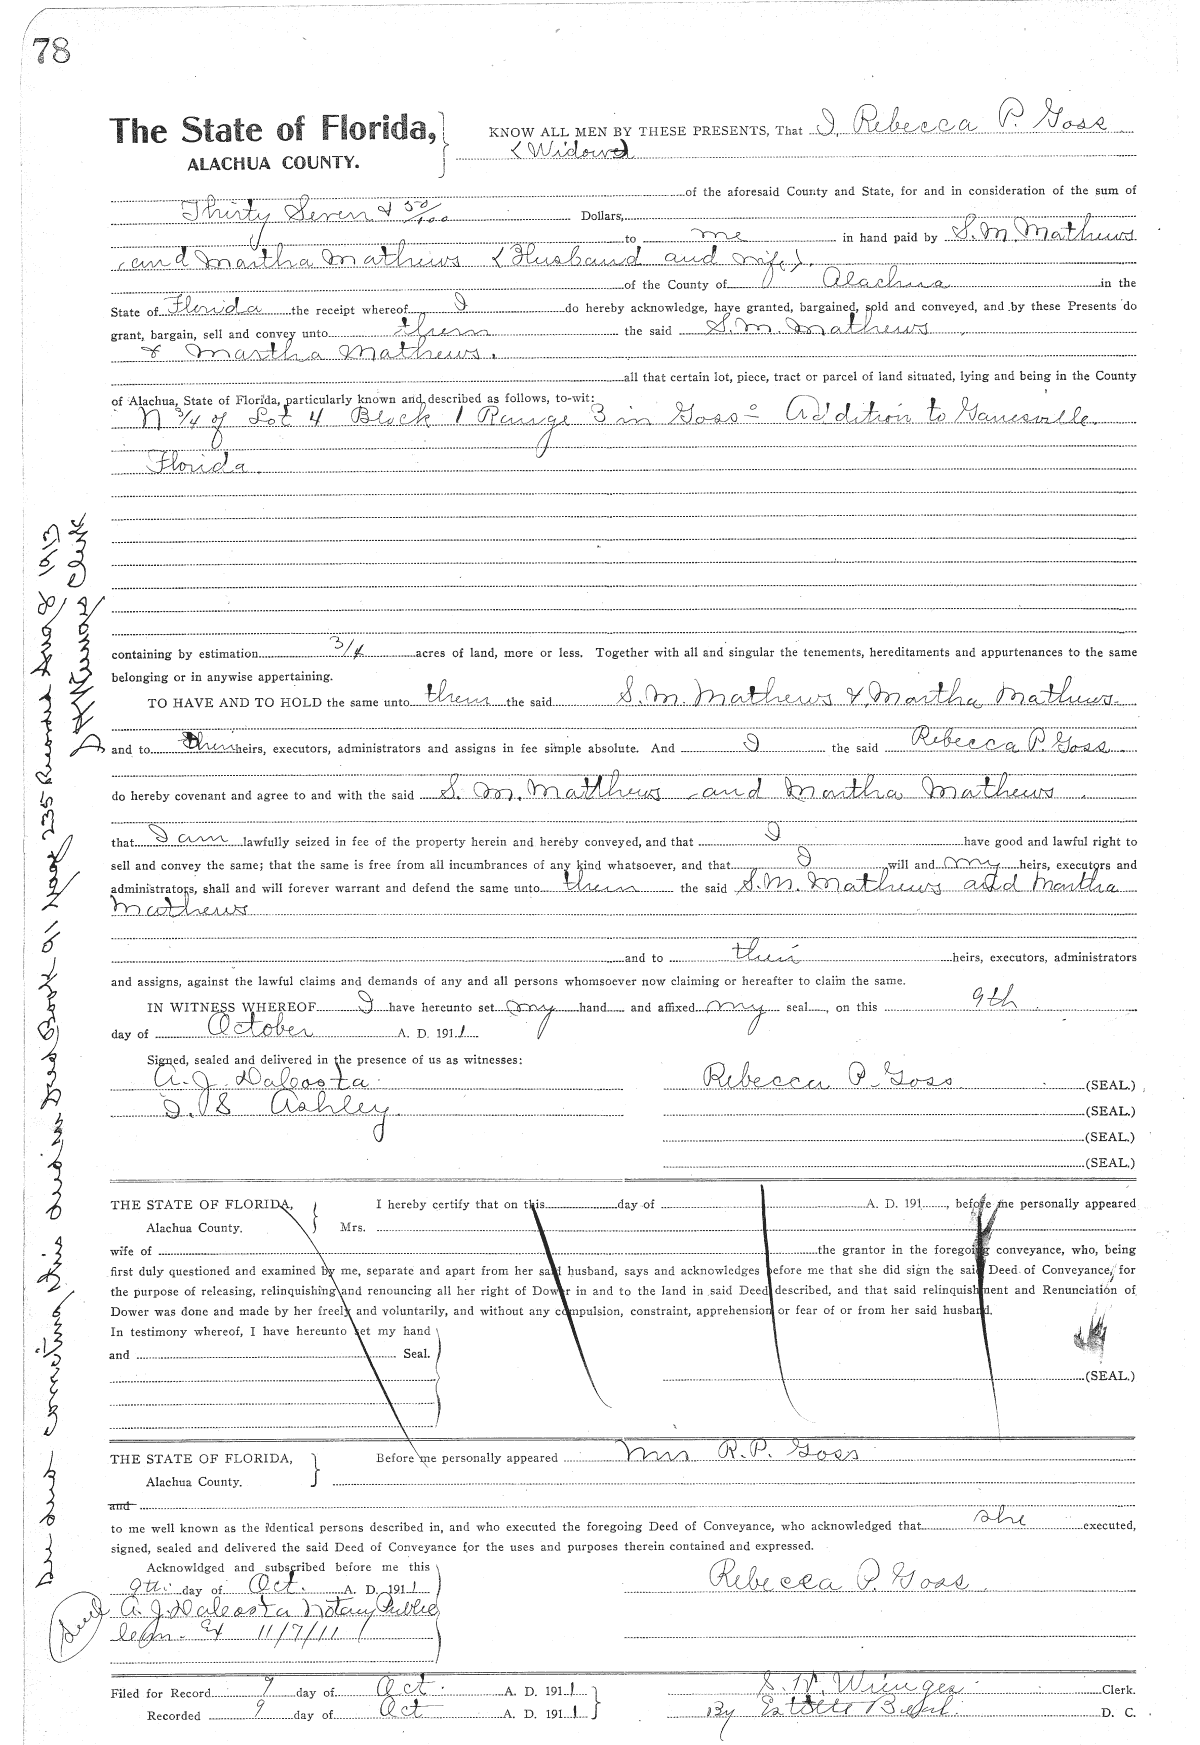 78
The State of Florida,
ALACHUA COUNTY.
KNOW ALL MEN BY THESE PRESENTS, That I, Rebecca P. Goss
(Widow)
of the aforesaid County and State, for and in consideration of the sum of
Thirty Seven & 50/100 Dollars,
to me in hand paid by S. M. Mathews
and Martha Mathews (Husband and wife).
of the County of Alachua in the
State of Florida the receipt whereof I do hereby acknowledge, have granted, bargained, sold and conveyed, and by these Presents do
grant, bargain, sell and convey unto them the said S. M. Mathews
& Martha Mathews.
all that certain lot, piece, tract or parcel of land situated, lying and being in the County
of Alachua, State of Florida, particularly known and described as follows, to-wit:
N 3/4 of Lot 4 Block 1 Range 3 in Goss Addition to Gainesville
Florida
containing by estimation 3/4 acres of land, more or less. Together with all and singular the tenements, hereditaments and appurtenances to the same
belonging or in anywise appertaining.
TO HAVE AND TO HOLD the same unto them the said S. M. Mathews & Martha Mathews.
and to their heirs, executors, administrators and assigns in fee simple absolute. And I the said Rebecca P. Goss
do hereby covenant and agree to and with the said S. M. Matthews and Martha Mathews
that I am lawfully seized in fee of the property herein and hereby conveyed, and that I have good and lawful right to
sell and convey the same; that the same is free from all incumbrances of any kind whatsoever, and that I will and my heirs, executors and
administrators, shall and will forever warrant and defend the same unto them the said S. M. Mathews and Martha
Mathews
and to their heirs, executors, administrators
and assigns, against the lawful claims and demands of any and all persons whomsoever now claiming or hereafter to claim the same.
IN WITNESS WHEREOF I have hereunto set my hand and affixed my seal, on this 9th
day of October A. D. 1911
Signed, sealed and delivered in the presence of us as witnesses:
A. J. Dacosta Rebecca P. Goss (SEAL.)
I. S Ashley (SEAL.)
(SEAL.)
(SEAL.)
THE STATE OF FLORIDA,
Alachua County.
I hereby certify that on this day of A. D. 191 , before me personally appeared
Mrs.
wife of the grantor in the foregoing conveyance, who, being
first duly questioned and examined by me, separate and apart from her said husband, says and acknowledges before me that she did sign the said Deed of Conveyance, for
the purpose of releasing, relinquishing and renouncing all her right of Dower in and to the land in said Deed described, and that said relinquishment and Renunciation of
Dower was done and made by her freely and voluntarily, and without any compulsion, constraint, apprehension or fear of or from her said husband.
In testimony whereof, I have hereunto set my hand
and Seal.
(SEAL.)
THE STATE OF FLORIDA,
Alachua County.
Before me personally appeared Mrs R. P. Goss
and
to me well known as the identical persons described in, and who executed the foregoing Deed of Conveyance, who acknowledged that she executed,
signed, sealed and delivered the said Deed of Conveyance for the uses and purposes therein contained and expressed.
Acknowldged and subscribed before me this
9th day of Oct. A. D. 1911 Rebecca P. Goss
Seal A. J. Dacosta Notary Public
Com. Ex 11/7/11
Filed for Record 9 day of Oct. A. D. 1911 S. H. Wienges Clerk.
Recorded 9 day of Oct A. D. 1911 By D. C.
See deed correcting this deed in Deed Book 91 Page 235 Records Aug 8 1913
S H Wienges Clerk